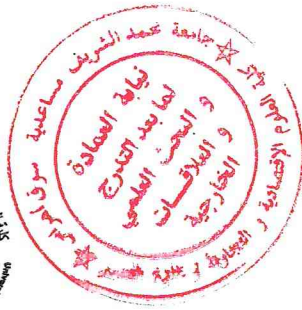 جامعة محمد الشريف مساعدية سوق أهراس
كلية العلوم الإقتصادية و التجارية و علوم التسيير
نيابة العمادة
لما بعد التدرج
و البحث العلمي
و العلاقات
الخارجية